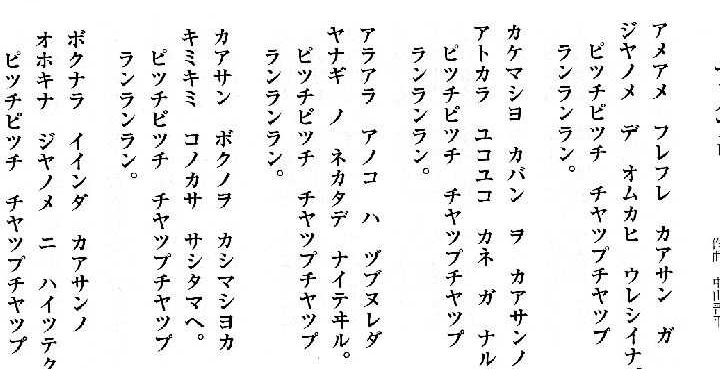 作曲 中山晋平
アメアメ フレフレ カアサン ガ
ジヤノメ デ オムカヒ ウレシイナ。
ピツチピツチ チヤツプチヤツプ
ランランラン。
カケマシヨ カバン ヲ カアサンノ
アトカラ ユコユコ カネ ガ ナル
ピツチピツチ チヤツプチヤツプ
ランランラン。
アラアラ アノコ ハ ヅブヌレダ
ヤナギ ノ ネカタデ ナイテヰル。
ピツチピツチ チヤツプチヤツプ
ランランラン。
カアサン ボクノヲ カシマシヨカ
キミキミ コノカサ サシタマヘ。
ピツチピツチ チヤツプチヤツプ
ランランラン。
ボクナラ イインダ カアサンノ
オホキナ ジヤノメ ニ ハイツテク
ピツチピツチ チヤツプチヤツプ